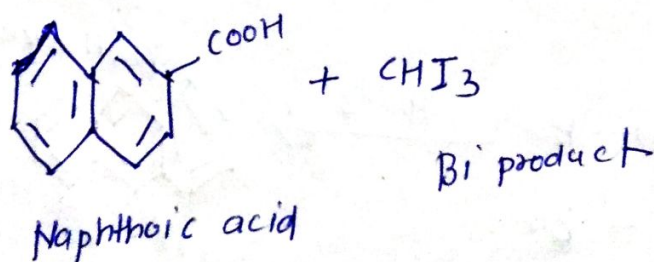 COOH
+ CHI3
Bi product
Naphthoic acid